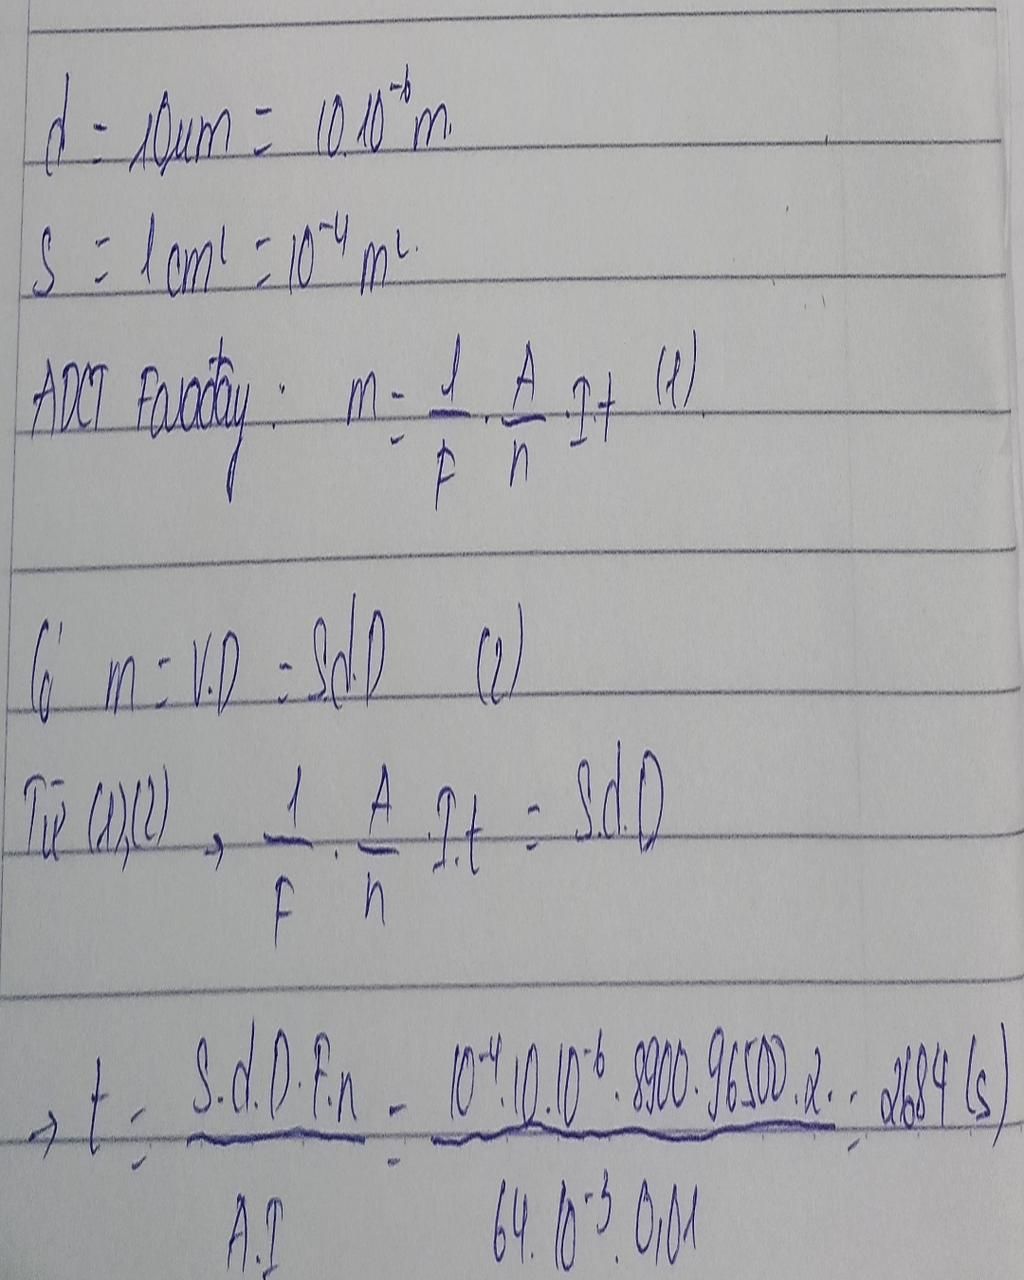 d = 10μm = 10.10⁻⁶ m.
S = 1 cm² = 10⁻⁴ m².
ADCT Faraday: m = 1/F . A/n .I.t (1)
Có m = V.D = S.d.D (2)
Từ (1),(2) → 1/F . A/n .I.t = S.d.D
→ t = S.d.D.F.n / A.I = 10⁻⁴.10.10⁻⁶.8900.96500.2 / 64.10⁻³.0,01 = 2684 (s)